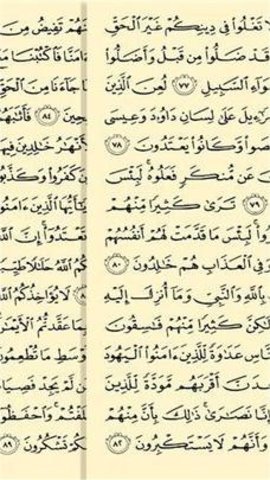 لَا تَغْلُوا۟ فِى دِينِكُمْ غَيْرَ ٱلْحَقِّ
قَدْ ضَلُّوا۟ مِن قَبْلُ وَأَضَلُّوا۟
وَآءِ ٱلسَّبِيلِ ٧٧ لُعِنَ ٱلَّذِينَ
رَٰٓءِيلَ عَلَىٰ لِسَانِ دَاوُۥدَ وَعِيسَى
صَوا۟ وَّكَانُوا۟ يَعْتَدُونَ ٧٨
نَ عَن مُّنكَرٍ فَعَلُوهُ ۚ لَبِئْسَ
٧٩ تَرَىٰ كَثِيرًا مِّنْهُمْ
وا۟ ۚ لَبِئْسَ مَا قَدَّمَتْ لَهُمْ أَنفُسُهُمْ
وَفِى ٱلْعَذَابِ هُمْ خَٰلِدُونَ ٨٠
بِٱللَّهِ وَٱلنَّبِىِّ وَمَآ أُنزِلَ إِلَيْهِ
لَٰكِنَّ كَثِيرًا مِّنْهُمْ فَٰسِقُونَ
نَّاسِ عَدَٰوَةً لِّلَّذِينَ ءَامَنُوا۟ ٱلْيَهُودَ
دَنَّ أَقْرَبَهُم مَّوَدَّةً لِّلَّذِينَ
إِنَّا نَصَٰرَىٰ ۚ ذَٰلِكَ بِأَنَّ مِنْهُمْ
وَأَنَّهُمْ لَا يَسْتَكْبِرُونَ ٨٢
نَهُمْ تَفِيضُ مِنَ
ءَامَنَّا فَٱكْتُبْنَا مَ
مَا جَآءَنَا مِنَ ٱلْحَقِّ
حِينَ ٨٤ فَأَثَٰبَهُمُ
أَنْهَٰرُ خَٰلِدِينَ فِيهَا
نَ كَفَرُوا۟ وَكَذَّبُوا
يَٰٓأَيُّهَا ٱلَّذِينَ ءَامَنُوا
تَعْتَدُوٓا۟ ۚ إِنَّ ٱللَّهَ
كُمُ ٱللَّهُ حَلَٰلًا طَيِّبًا
لَا يُؤَاخِذُكُمُ ٱللَّهُ
مَا عَقَّدتُّمُ ٱلْأَيْمَٰنَ
وْسَطِ مَا تُطْعِمُونَ
ن لَّمْ يَجِدْ فَصِيَامُ
لَفْتُمْ ۚ وَٱحْفَظُوٓا
كُمْ تَشْكُرُونَ ٨٩